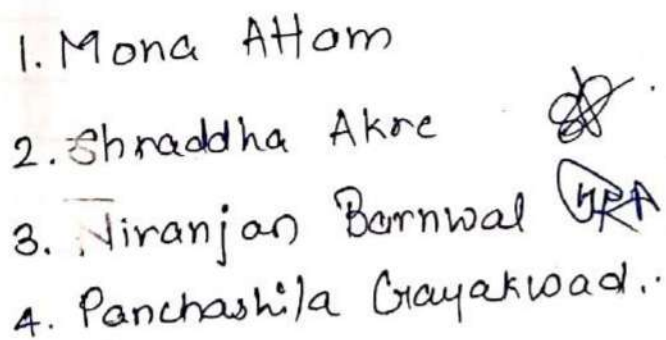 1. Mona Attom
2. Shraddha Akre
3. Niranjan Barnwal
4. Panchashila Gayakwad.